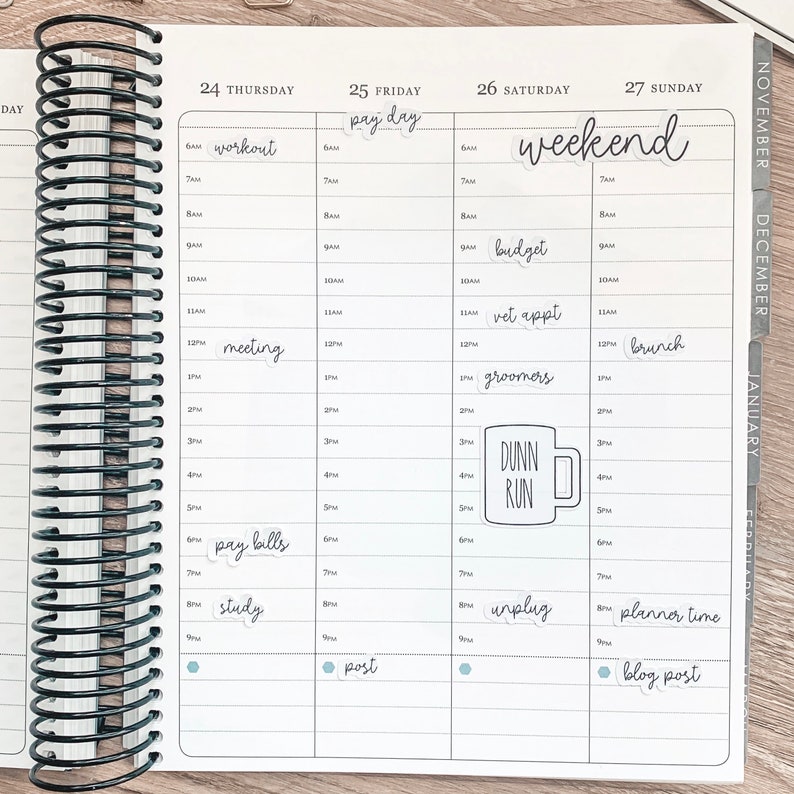 DAY
24 THURSDAY
6AM workout
7AM
8AM
9AM
10AM
11AM
12PM meeting
1PM
2PM
3PM
4PM
5PM
6PM pay bills
7PM
8PM study
9PM
25 FRIDAY
pay day
6AM
7AM
8AM
9AM
10AM
11AM
12PM
1PM
2PM
3PM
4PM
5PM
6PM
7PM
8PM
9PM
post
26 SATURDAY
6AM weekend
7AM
8AM
9AM budget
10AM
11AM vet appt
12PM
1PM groomers
2PM
3PM DUNN
4PM RUN
5PM
6PM
7PM
8PM unplug
9PM
27 SUNDAY
7AM
8AM
9AM
10AM
11AM
12PM brunch
1PM
2PM
3PM
4PM
5PM
6PM
7PM
8PM planner time
9PM
blog post
NOVEMBER
DECEMBER
JANUARY
FEBRUARY